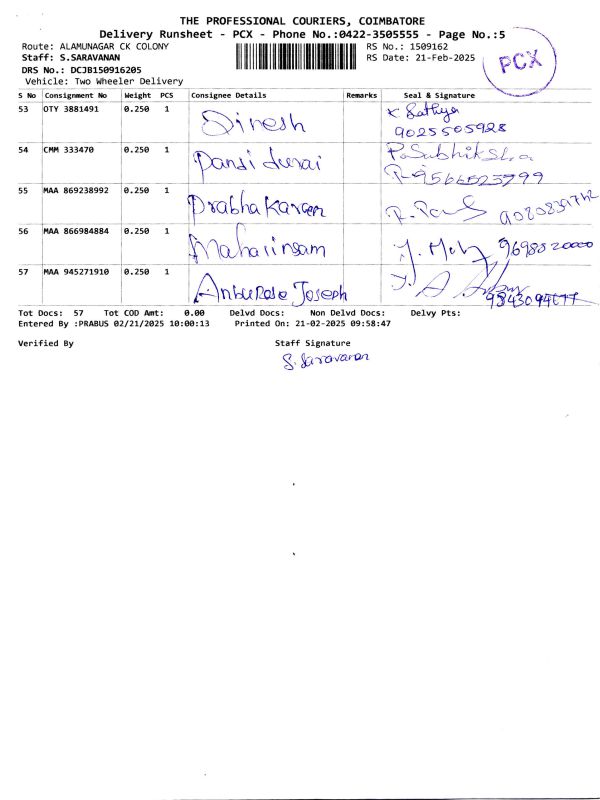 THE PROFESSIONAL COURIERS, COIMBATORE
Delivery Runsheet - PCX - Phone No.:0422-3505555 - Page No.:5
Route: ALAMUNAGAR CK COLONY RS No.: 1509162
Staff: S.SARAVANAN RS Date: 21-Feb-2025
PCX
DRS No.: DCJB150916205
Vehicle: Two Wheeler Delivery
S No Consignment No Weight PCS Consignee Details Remarks Seal & Signature
53 OTY 3881491 0.250 1 Dinesh K Sathya
9025505928
54 CMM 333470 0.250 1 Pandi durai P. Subhiksha
55 MAA 869238992 0.250 1 Prabhakaran
56 MAA 866984884 0.250 1 9698820000
57 MAA 945271910 0.250 1 Anburose Joseph
Tot Docs: 57 Tot COD Amt: 0.00 Delvd Docs: Non Delvd Docs: Delvy Pts:
Entered By :PRABUS 02/21/2025 10:00:13 Printed On: 21-02-2025 09:58:47
Verified By Staff Signature
S. Saravanan